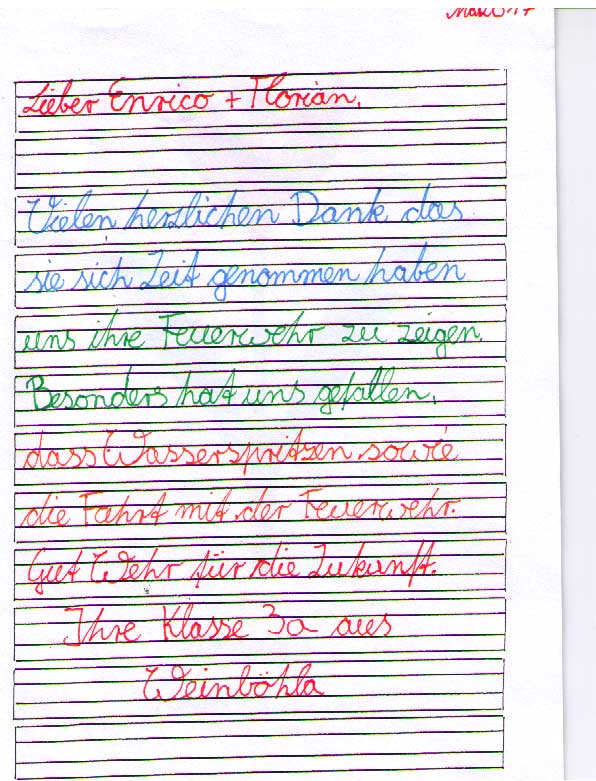 Lieber Enrico + Florian,
Vielen herzlichen Dank das
sie sich Zeit genommen haben
uns ihre Feuerwehr zu zeigen.
Besonders hat uns gefallen,
dass Wasserspritzen sowie
die Fahrt mit der Feuerwehr.
Gut Wehr für die Zukunft.
Ihre Klasse 3a aus
Weinböhla